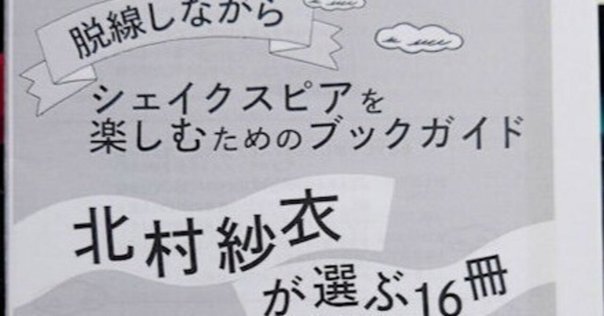 脱線しながら
シェイクスピアを
楽しむためのブックガイド
北村紗衣
が選ぶ16冊